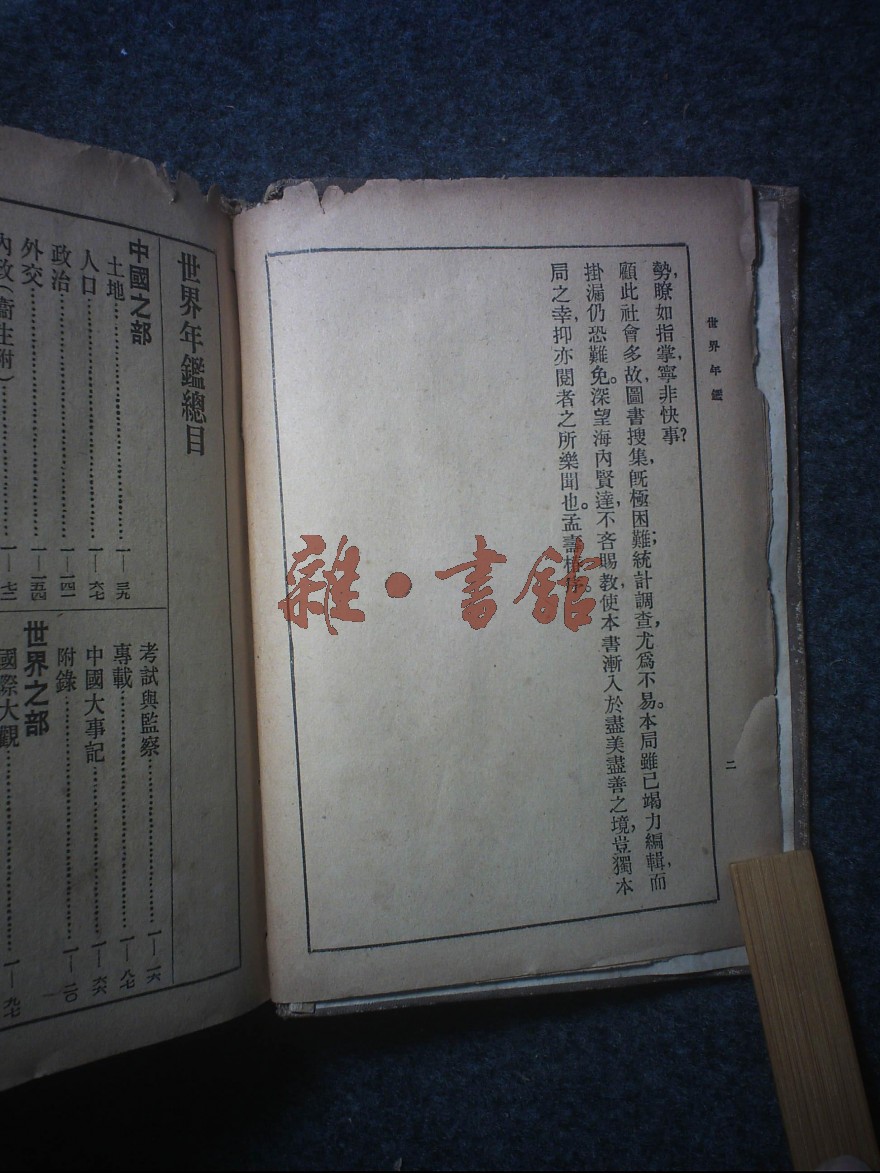 世界年鑑
二
勢,瞭如指掌,寧非快事?
顧此社會多故,圖書搜集,既極困難;統計調查,尤爲不易。本局雖已竭力編輯,而
掛漏仍恐難免。深望海內賢達,不吝賜教,使本書漸入於盡美盡善之境,豈獨本
局之幸,抑亦閱者之所樂聞也。孟壽椿序。
雜·書館
世界年鑑總目
中國之部
土地 一—三九
人口 一—六七
政治 一—四二
外交 一—五四
內政(衞生附) 一—七二
考試與監察 一—一六
專載 一—八七
中國大事記 一—六六
附錄 一—二〇
世界之部
國際大觀 一—九七